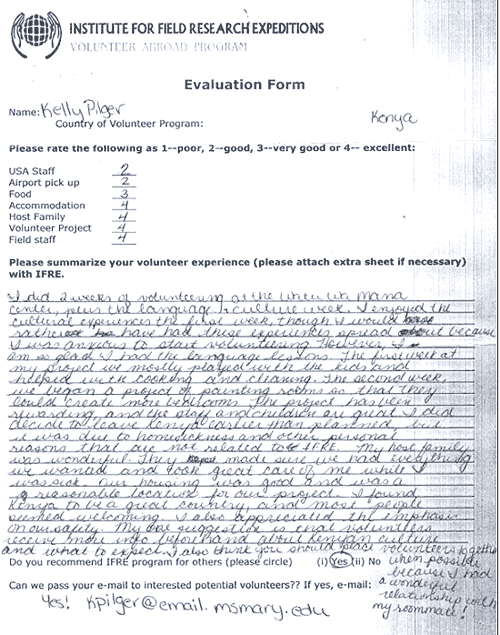 INSTITUTE FOR FIELD RESEARCH EXPEDITIONS
VOLUNTEER ABROAD PROGRAM
Evaluation Form
Name: Kelly Pilger
Country of Volunteer Program: Kenya
Please rate the following as 1--poor, 2--good, 3--very good or 4-- excellent:
USA Staff 2
Airport pick up 2
Food 3
Accommodation 4
Host Family 4
Volunteer Project 4
Field staff 4
Please summarize your volunteer experience (please attach extra sheet if necessary)
with IFRE.
I did 2 weeks of volunteering at the Mana
center, plus the language & culture week. I enjoyed the
cultural experiences the first week, though I would
rather have had these experiences spread out because
I was anxious to start volunteering. However, I
am so glad I had the language lessons. The first week at
my project we mostly played with the kids and
helped with cooking and cleaning. The second week,
we began a project of painting rooms so that they
could create more bedrooms. The project has been
rewarding, and the staff and children are great. I did
decide to leave Kenya earlier than planned, but
it was due to homesickness and other personal
reasons that are not related to IFRE. My host family
was wonderful. They made sure we had everything
we wanted and took great care of me while I
was sick. Our housing was good and was a
reasonable location for our project. I found
Kenya to be a great country, and most people
seemed welcoming. I also appreciated the emphasis
on our safety. My suggestion is that
receive more info beforehand about Kenyan culture
and what to expect. I also think you should place volunteers together
Do you recommend IFRE program for others (please circle) (i) Yes (ii) No
when possible
because I had
a wonderful
relationship with
my roommate!
Can we pass your e-mail to interested potential volunteers?? If yes, e-mail:
Yes! kpilger@email.msmary.edu